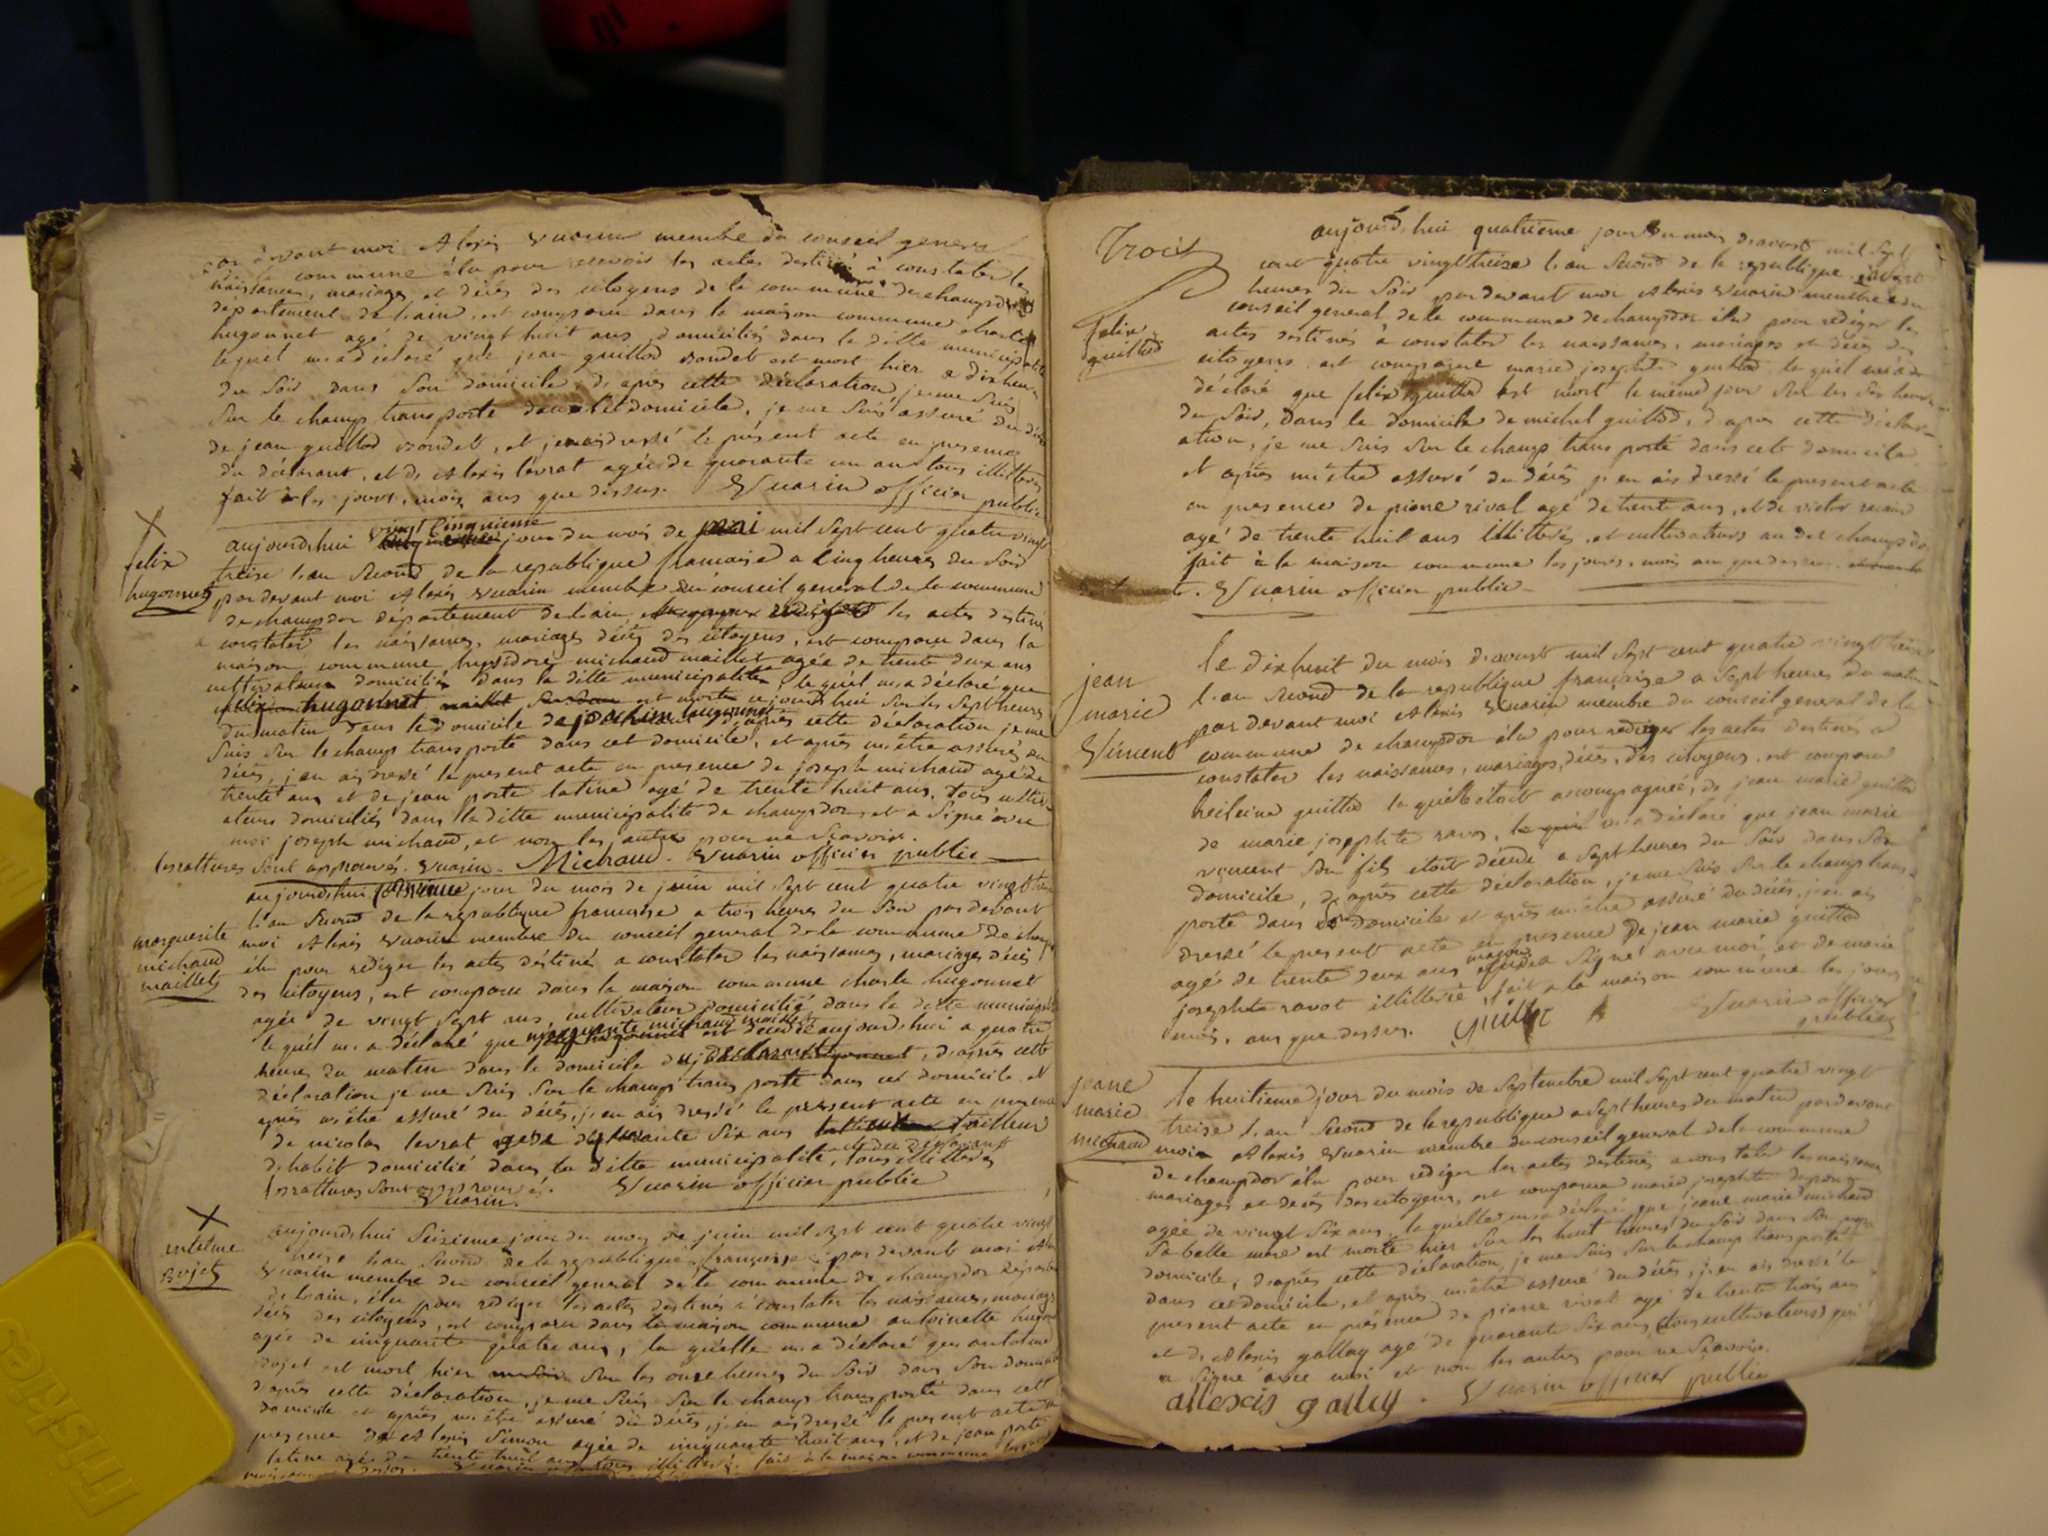 par devant moi Alexis Vuarin membre du conseil general
de la commune élu pour recevoir les actes destinés à constater les
naissances, mariages et décès des citoyens de la commune de champdor
département de l'ain, est comparu dans la maison commune charle
hugonnet agé de vingt huit ans domicilié dans la ditte municipalité
lequel m'a déclaré que jean guillod bondet est mort hier a dix heures
du soir dans son domicile, d'après cette déclaration je me suis
sur le champ transporté dans le domicile, je me suis assuré du décès
de jean guillod bondet, et j'en ai dressé le présent acte en presence
du déclarant, et de Alexis levrat agée de quarante un ans tous illiterés
fait à les jours, mois, ans que dessus. Vuarin officier public
felix
hugonnet
vingt cinquieme
aujourd'hui jour du mois de mai mil sept cent quatre vingt
treise l'an second de la republique francaise a cinq heures du soir
par devant moi Alexis Vuarin membre du conseil general de la commune
de champdor département de l'ain, rediger les actes destinés
a constater les naissances, mariages décès des citoyens, est comparu dans la
maison commune michaud maillet agée de trente deux ans
cultivateur domicilié dans la ditte municipalité le quel m'a déclaré que
felix hugonnet maillet est mort ce jourd'hui sur les sept heures
du matin dans le domicile de joachim hugonnet d'après cette déclaration je me
suis sur le champ transporté dans cet domicile, et après m'être assuré du
décès, j'en ai dressé le present acte en presence de joseph michaud agé de
trente ans et de jean porte latine agé de trente huit ans, tous cultiv-
ateurs domiciliés dans la ditte municipalité de champdor, et a signé avec
moi joseph michaud, et non les autres pour ne scavoir.
les rattures sont approuvés. Vuarin. Michaud. Vuarin officier public
marguerite
michaud
maillet
aujourd'hui jour du mois de juin mil sept cent quatre vingt treise
l'an second de la republique francaise a trois heures du soir par devant
moi Alexis Vuarin membre du conseil general de la commune de champdor
élu pour rédiger les actes déstinés a constater les naissances, mariages décès
des citoyens, est comparu dans la maison commune charle hugonnet
agée de vingt sept ans, cultivateur domicilié dans la ditte municipalité
le quel m'a déclaré que marguerite michaud maillet est décédée aujourd'hui a quatre
heures du matin dans le domicile du declarant, d'après cette
déclaration je me suis sur le champ transporté dans cet domicile et
après m'être assuré du décès, j'en ai dressé le present acte en presence
de nicolas levrat agée de quarante six ans tailleur
d'habit domicilié dans la ditte municipalité, et du déposant tous illiterés
les rattures sont approuvés. Vuarin officier public
Vuarin.
antelme
bojet
aujourd'hui seizieme jour du mois de juin mil sept cent quatre vingt
treise l'an second de la republique française, par devant moi Alexis
Vuarin membre du conseil general de la commune de champdor département
de l'ain, élu pour rediger les actes destinés a constater les naissances, mariages
décès des citoyens, est comparu dans la maison commune antoinette hugonnet
agée de cinquante quatre ans, la quelle m'a déclaré que antelme
bojet est mort hier sur les onze heures du soir dans son domicile
d'après cette déclaration, je me suis sur le champ transporté dans cet
domicile et après m'être assuré du décès, j'en ai dressé le present acte en
presence de Alexis simon agée de cinquante huit ans, et de jean porte
latine agé de trente huit ans tous illiterés. fait à la maison commune les jours
Vuarin
Trois
felix
guillod
aujourd'hui quatrieme jour du mois d'aoust mil sept
cent quatre vingt treise l'an second de la republique
heures du soir par devant moi Alexis Vuarin membre du
conseil general de la commune de champdor élu pour rédiger les
actes destinés à constater les naissances, mariages et décès des
citoyens est comparu marie josephte guillod le quel m'a
déclaré que felix guillod est mort le même jour sur les six heures
du soir, dans le domicile de michel guillod, d'après cette déclar-
ation, je me suis sur le champ transporté dans cet domicile
et après m'être assuré du décès j'en ai dressé le present acte
en presence de pierre rival agé de trente ans, et de victor
agé de trente huit ans illiterés, et cultivateurs au dit champdor
fait à la maison commune les jours, mois an que dessus.
Vuarin officier public
jean
marie
Vincent
le dixhuit du mois d'aoust mil sept cent quatre vingt treise
l'an second de la republique française a sept heures du matin
par devant moi Alexis Vuarin membre du conseil general de la
commune de champdor élu pour rédiger les actes destinés a
constater les naissances, mariages, décès, des citoyens, est comparu
guillod la quelle étoit accompagnée, de jean marie guillod
de marie josephte ravot, m'a déclaré que jean marie
vincent son fils étoit décédé a sept heures du soir dans son
domicile, d'après cette déclaration, je me suis sur le champ trans-
porté dans son domicile et après m'être assuré du décès, j'en ai
dressé le present acte en presence de jean marie guillod
agé de trente deux ans maçon signé avec moi, et de marie
josephte ravot illiterée, fait a la maison commune les jours
mois, ans que dessus. guillot Vuarin officier
public
jeane
marie
michaud
le huitieme jour du mois de septembre mil sept cent quatre vingt
treise l'an second de la republique a sept heures du matin par devant
moi Alexis Vuarin membre du conseil general de la commune
de champdor élu pour rediger les actes destinés a constater les naissances
mariages et décès des citoyens, est comparu marie josephte
agée de vingt six ans, la quelle m'a déclaré que jeane marie michaud
sa belle mere est morte hier sur les huit heures du soir dans son
domicile, d'après cette déclaration, je me suis sur le champ transporté
dans cet domicile, et après m'être assuré du décès, j'en ai dressé le
present acte en présence de pierre rival agé de trente trois ans
et de Alexis gallay agé de quarante six ans tous cultivateurs qui
a signé avec moi et non les autres pour ne scavoir.
allexis gallay. Vuarin officier public